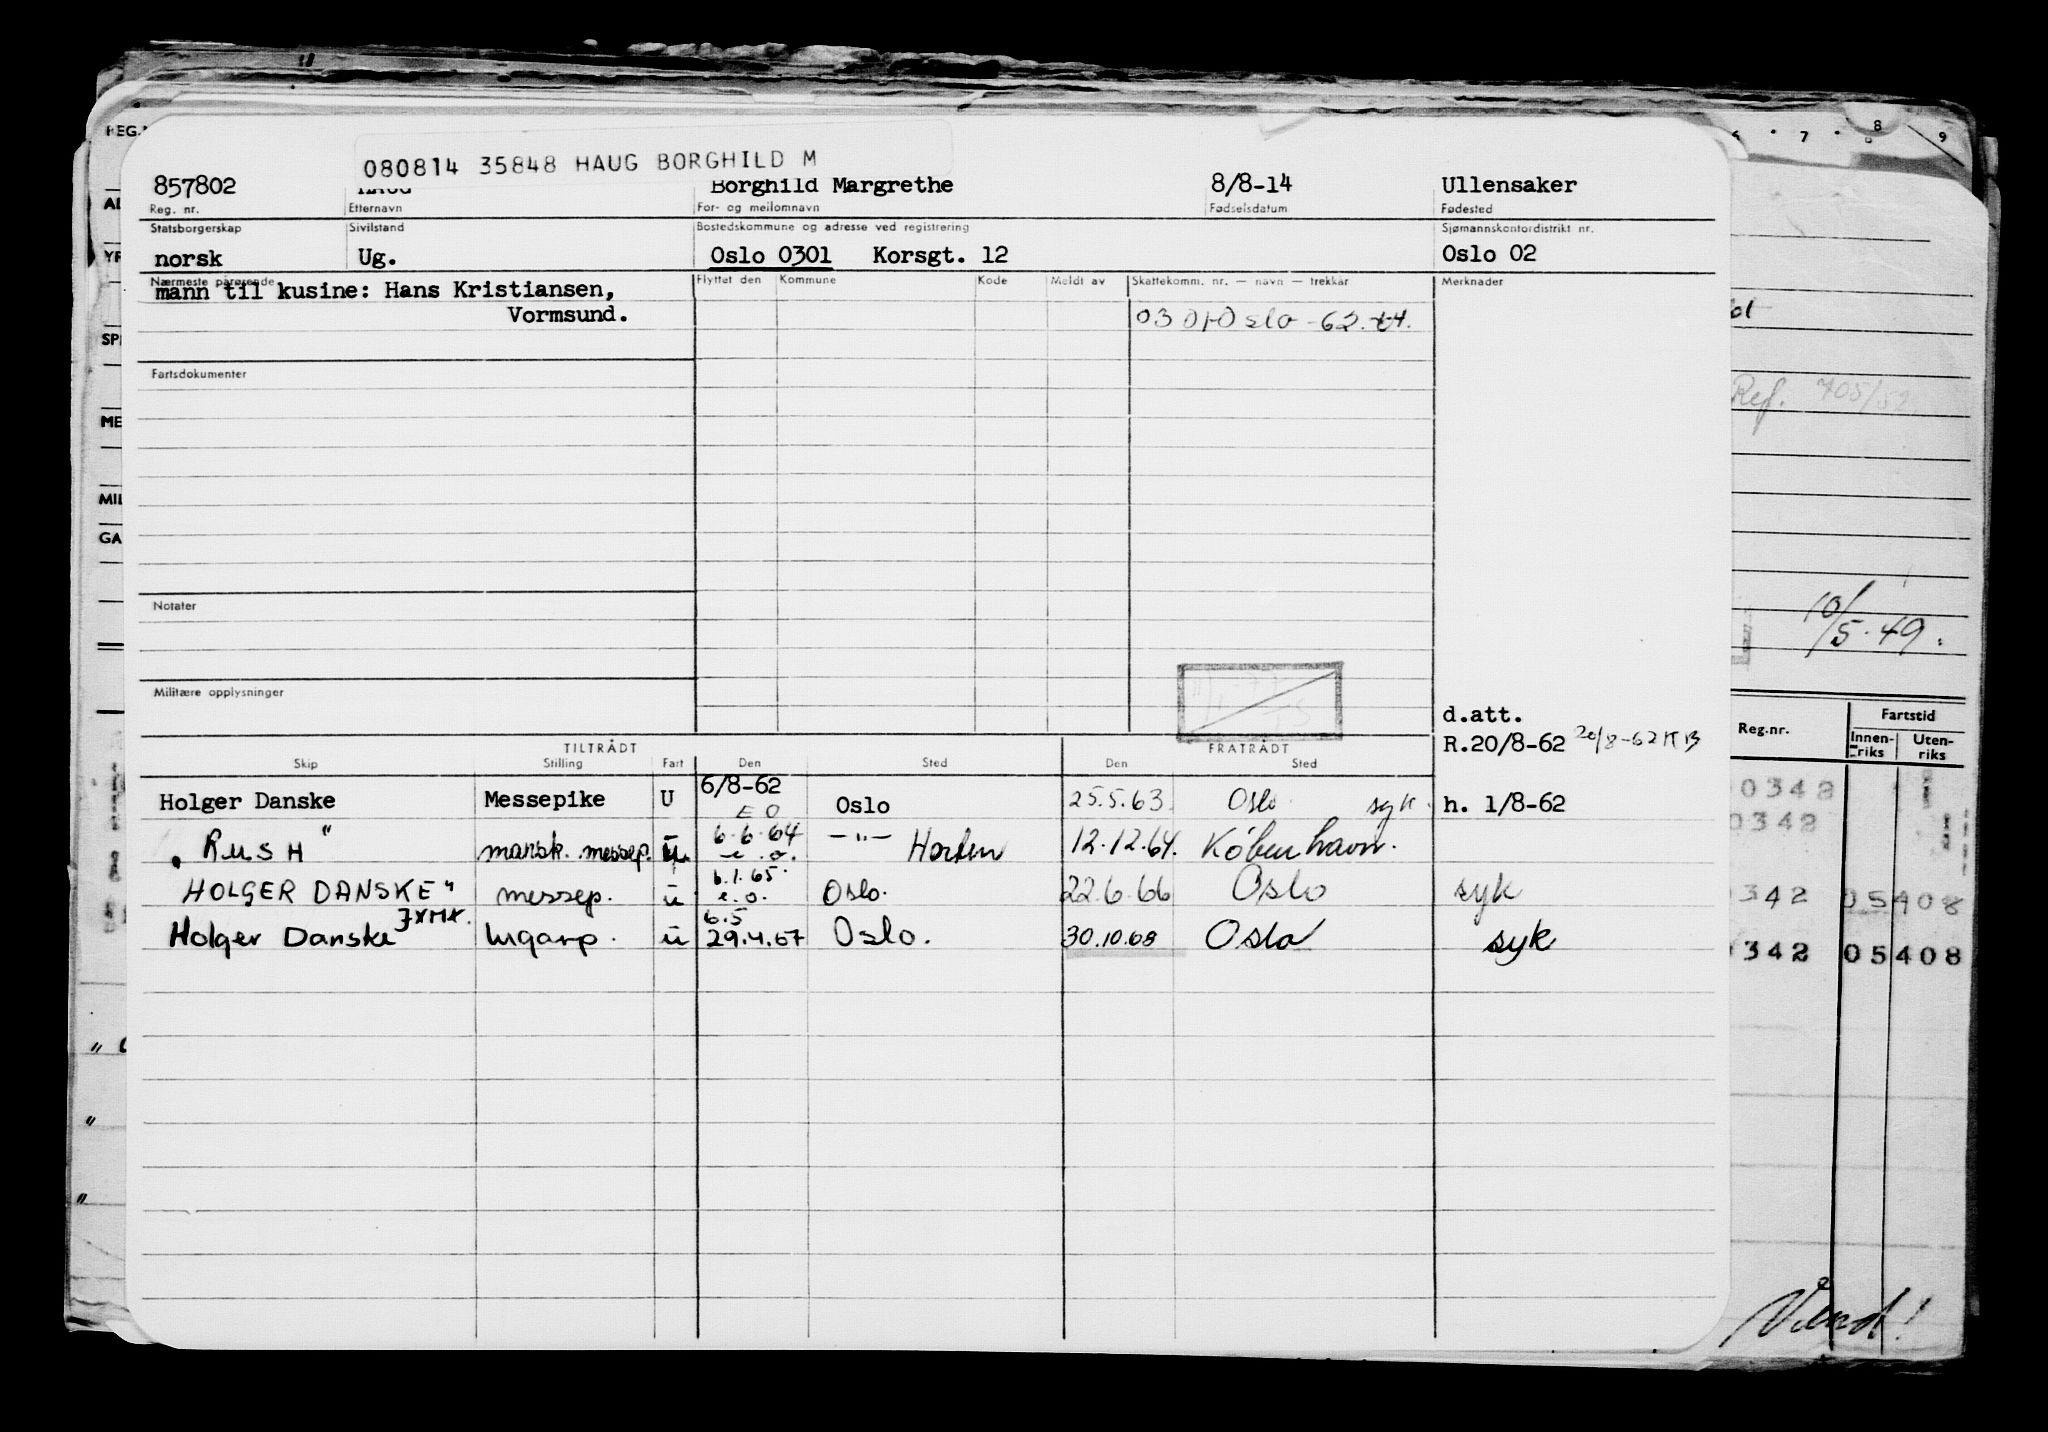 080814 35848 HAUG BORGHILD M
857802 HAUG Borghild Margrethe 8/8-14 Ullensaker
Reg. nr. Etternavn For- og mellomnavn Fødselsdatum Fødested
Statsborgerskap Sivilstand Bostedskommune og adresse ved registrering Sjømannskontordistrikt nr.
norsk Ug. Oslo 0301 Korsgt. 12 Oslo 02
Nærmeste pårørende Flyttet den Kommune Kode Meldt av Skattekomm. nr. — navn — trekkår Merknader
mann til kusine: Hans Kristiansen,
Vormsund. 0301 Oslo -62.64.
Fartsdokumenter
Notater
Militære opplysninger
d.att.
R.20/8-62 20/8-62 KB
TILTRÅDT FRATRÅDT
Skip Stilling Fart Den Sted Den Sted
Holger Danske Messepike U 6/8-62 EO Oslo 25.5.63. Oslo. syk. h. 1/8-62
"RUSH" mansk. messep. u 6.6.64 e.o. —"— Horten 12.12.64. København.
HOLGER DANSKE" messep. u 6.1.65. e.o. Oslo. 22.6.66 Oslo syk
Holger Danske JXMX. lugarp. u 6.5 29.4.67 Oslo. 30.10.68 Oslo syk
REG.
YR
SP
ME
MIL
GA
6 7 8 9
Ref. 705/52
10/5.49.
Reg.nr. Fartstid
Innen-riks Uten-riks
0342
0342
342 05408
342 05408
Vend!